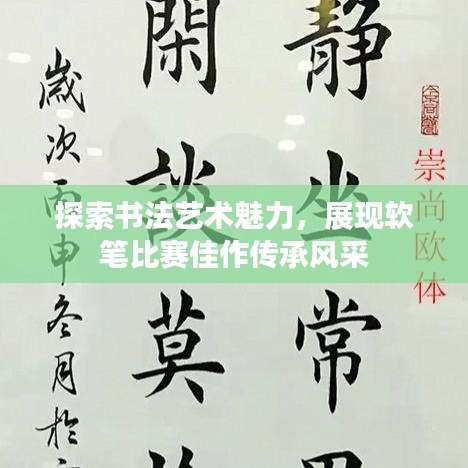 探索书法艺术魅力，展现软
笔比赛佳作传承风采
崇尚欧体
静坐常
閑談莫
歲次丙申冬月於